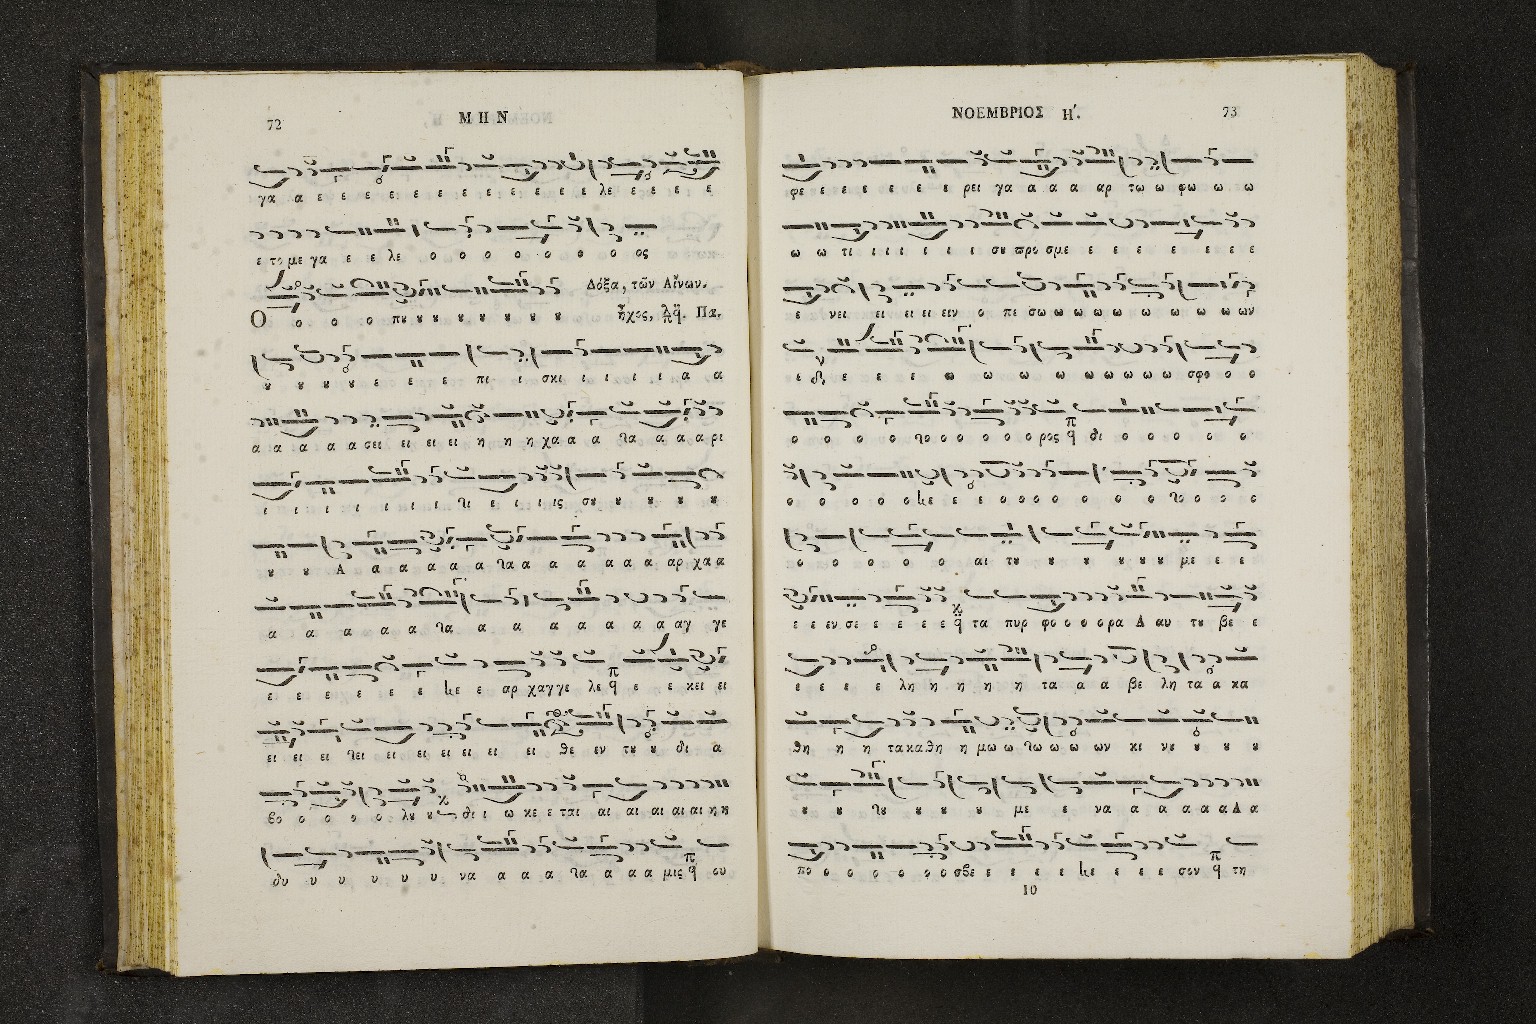 72
ΜΗΝ
γα α ε ε ε ε ε ε ε ε ε ε ε ε λε ε ε ε ε
ε το με γα ε ε λε ο ο ο ο ο ο ο ο ος
Δόξα, τῶν Αἴνων.
Ο ο ο ο ο πȣ ȣ ȣ ȣ ȣ ȣ ȣ ȣ ἦχος, Πα.
ȣ ȣ ȣ ȣ ε ε ε ε πι ι σκι ι ι ι ι ι α α
α α α α α α σει ει ει ει η η η χα α α α α α α ρι
ι ι ι ι ι ι ι ι ε ι ι ις σȣ ȣ ȣ ȣ ȣ ȣ
ȣ ȣ Α α α α α α α α α α α α α αρ χα α
α α α α α α α α α α α α α αγ γε
ε ε ε ε ε ε ε ε αρ χαγ γε λε ε ε κει ει
ει ει ει ει ει ει ει ει ει ει θε εν τȣ ȣ δι α
βο ο ο ο ο λȣ ȣ δι ι ω κε ε ται αι αι αι αι αι η η
δυ υ υ υ υ υ υ να α α α α α α α μις ου
ΝΟΕΜΒΡΙΟΣ Η΄.
73
φε ε ε ε ε ε ε ρει γα α α α αρ τω ω φω ω ω
ω ω τι ι ι ι ι ι ι σȣ προ σμε ε ε ε ε ε ε ε
ε νει ει ει ει ειν ο πε σω ω ω ω ω ω ω ω ων
ε δε ε ε ε ω ω ω ω ω ω ω ω ω σφο ο ο
ο ο ο ο ο ο ο ο ο ο ρος δι ο ο ο ο ο ο
ο ο ο ο ο ε ε ε ο ο ο ο ο ο ο ο ο ο ο
ο ο ο ο ο αι τȣ ȣ ȣ ȣ ȣ ȣ με ε ε
ε ε εν σε ε ε ε ε τα πυρ φο ο ο ο ρα Δ αυ τȣ βε ε
ε ε ε ε λη η η η η η τα α α βε λη τα α κα
θη η η τα κα θη η μω ω ω ω ω ων κι νȣ ȣ ȣ ȣ
ȣ ȣ ȣ ȣ ȣ ȣ με ε να α α α α α Δ α
πο ο ο ο ο ο ο σβε ε ε ε ε ε ε ε ε σον τη
10